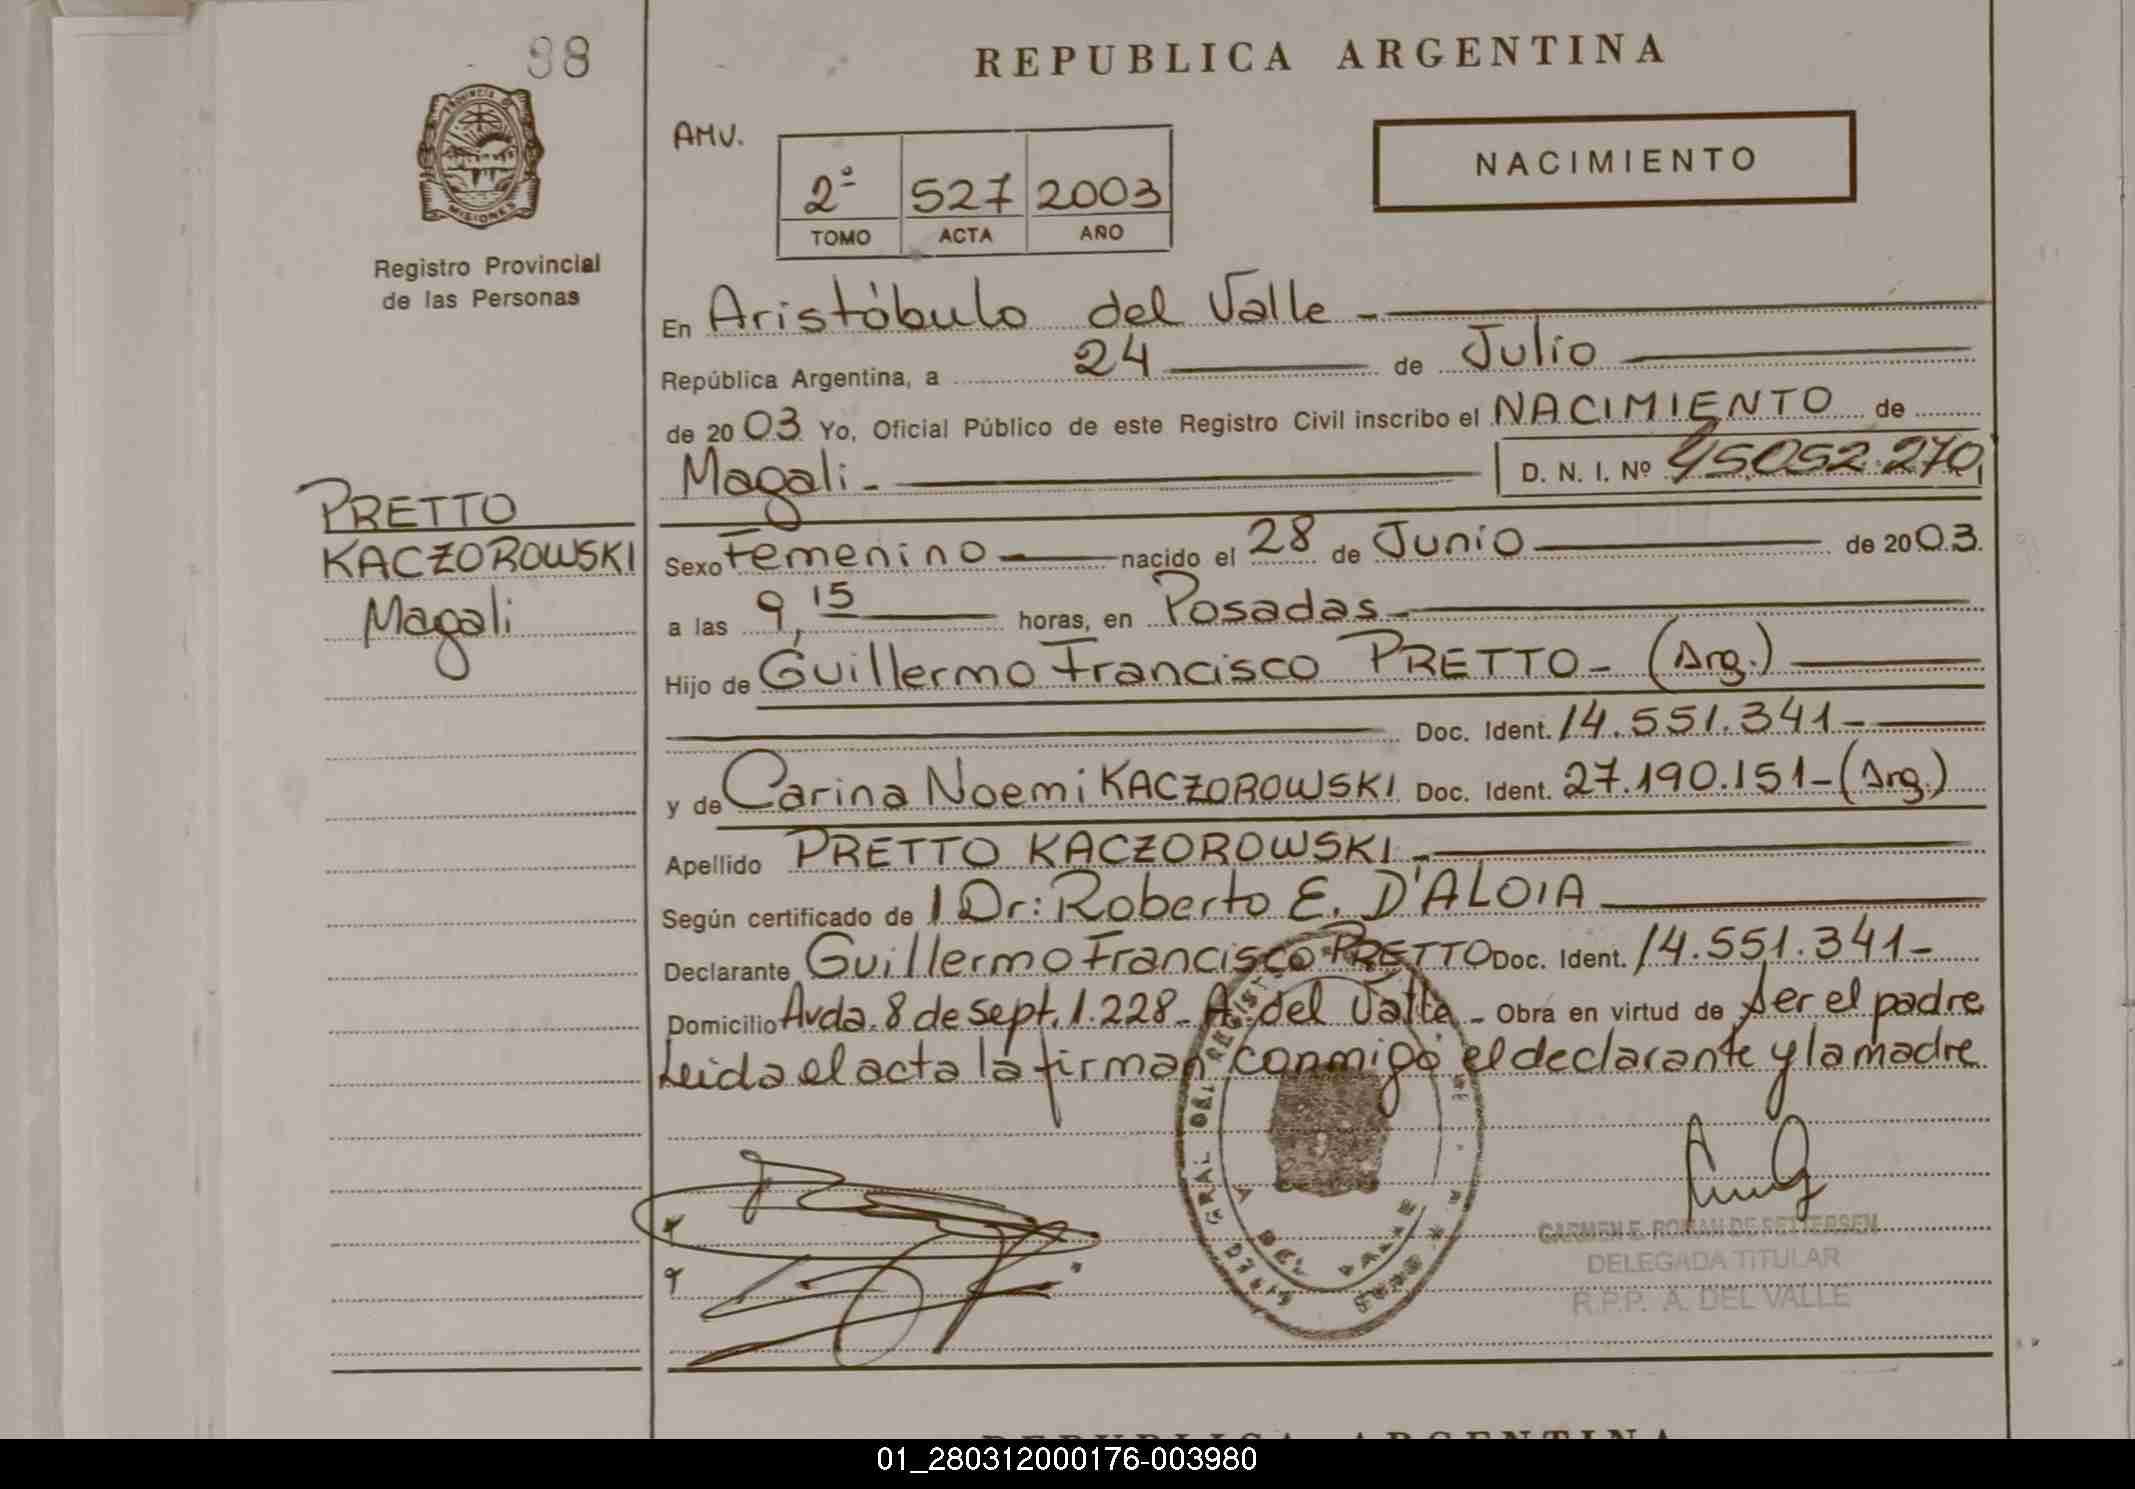 98
REPUBLICA ARGENTINA
PROVINCIA D
MISIONES
Registro Provincial
de las Personas
AMV.
2º 527 2003
TOMO ACTA AÑO
NACIMIENTO
En Aristóbulo del Valle -
República Argentina, a 24 de Julio
de 2003 Yo, Oficial Público de este Registro Civil inscribo el NACIMIENTO de
Magali - D. N. I. Nº 45052.270
PRETTO
KACZOROWSKI
Magali
Sexo Femenino nacido el 28 de Junio de 2003.
a las 9,15 horas, en Posadas -
Hijo de Guillermo Francisco PRETTO - (Arg.)
Doc. Ident. 14.551.341 -
y de Carina Noemi KACZOROWSKI Doc. Ident. 27.190.151 - (Arg.)
Apellido PRETTO KACZOROWSKI -
Según certificado de 1 Dr: Roberto E. D'ALOIA
Declarante Guillermo Francisco PRETTO Doc. Ident. 14.551.341 -
Domicilio Avda. 8 de sept. 1.228 - A. del Valle - Obra en virtud de ser el padre
Leida el acta la firman conmigo el declarante y la madre.
GRAL DEL REGIST
A DEL VALLE
CARMEN E. ROMAN DE SETTERSEN
DELEGADA TITULAR
R.P.P. A. DEL VALLE
REPUBLICA ARGENTINA
01_280312000176-003980